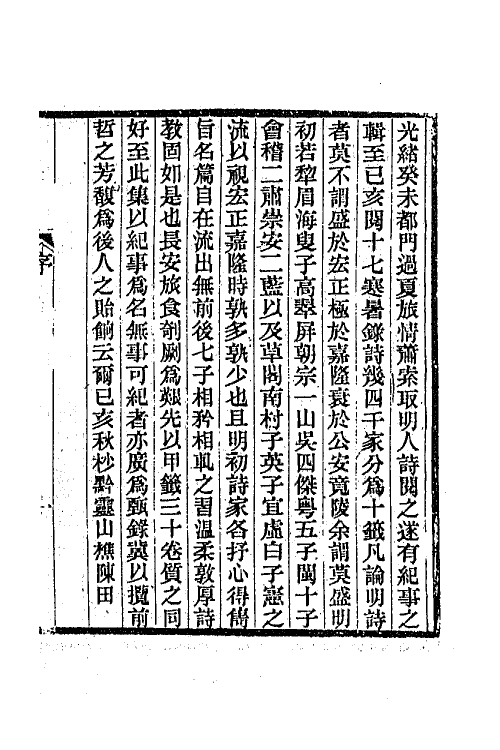 光緒癸未都門過夏旅情蕭索取明人詩閱之遂有紀事之
輯至已亥閱十七寒暑錄詩幾四千家分為十籤凡論明詩
者莫不謂盛於宏正極於嘉隆衰於公安竟陵余謂莫盛明
初若犂眉海叟子高翠屏朝宗一山吳四傑粵五子閩十子
會稽二肅崇安二藍以及草閣南村子英子宜虛白子憲之
流以視宏正嘉隆時孰多孰少也且明初詩家各抒心得雋
旨名篇自在流出無前後七子相矜相軋之習溫柔敦厚詩
教固如是也長安旅食剞劂為艱先以甲籤三十卷質之同
好至此集以紀事為名無事可紀者亦廣為甄錄冀以攬前
哲之芳馥為後人之貽餉云爾已亥秋杪黔靈山樵陳田
序